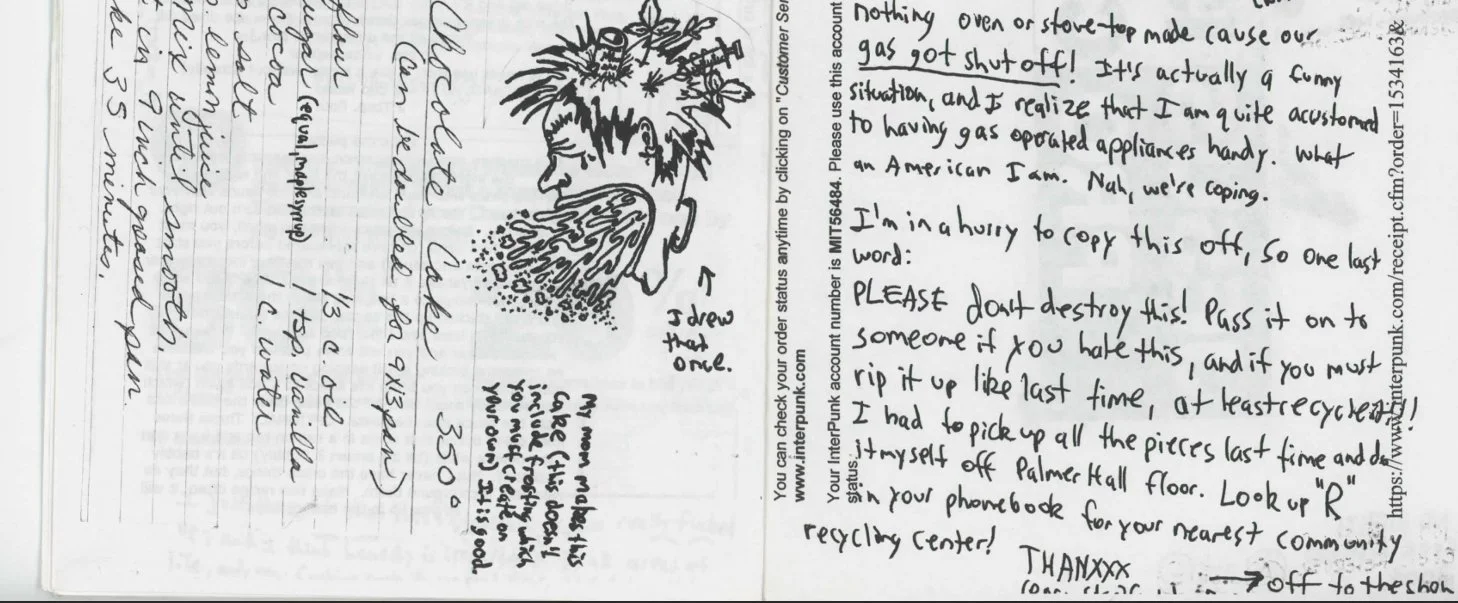 Chocolate Cake 350°
(can be doubled for 9x13 pan)
flour 1/3 c. oil
sugar (equal, maple syrup) 1 tsp vanilla
cocoa 1 c. water
salt
lemmjuice
Mix until smooth.
in 9 inch greased pan.
35 minutes.
I drew
that
once.
My mom makes this
cake (this doesn't
include frosting which
you must create on
your own) It is good.
You can check your order status anytime by clicking on "Customer Ser
www.interpunk.com
Your InterPunk account number is MIT56484. Please use this account
status.
nothing oven or stove-top made cause our
gas got shut off! It's actually a funny
situation, and I realize that I am quite acustomed
to having gas operated appliances handy. What
an American I am. Nah, we're coping.
I'm in a hurry to copy this off, so one last
word:
PLEASE don't destroy this! Pass it on to
someone if you hate this, and if you must
rip it up like last time, at least recycle it!!
I had to pick up all the pieces last time and do
it myself off Palmer Hall floor. Look up "R"
in your phonebook for your nearest community
recycling center!
THANXXX
→ off to the show
https://www.interpunk.com/receipt.cfm?order=1534163&